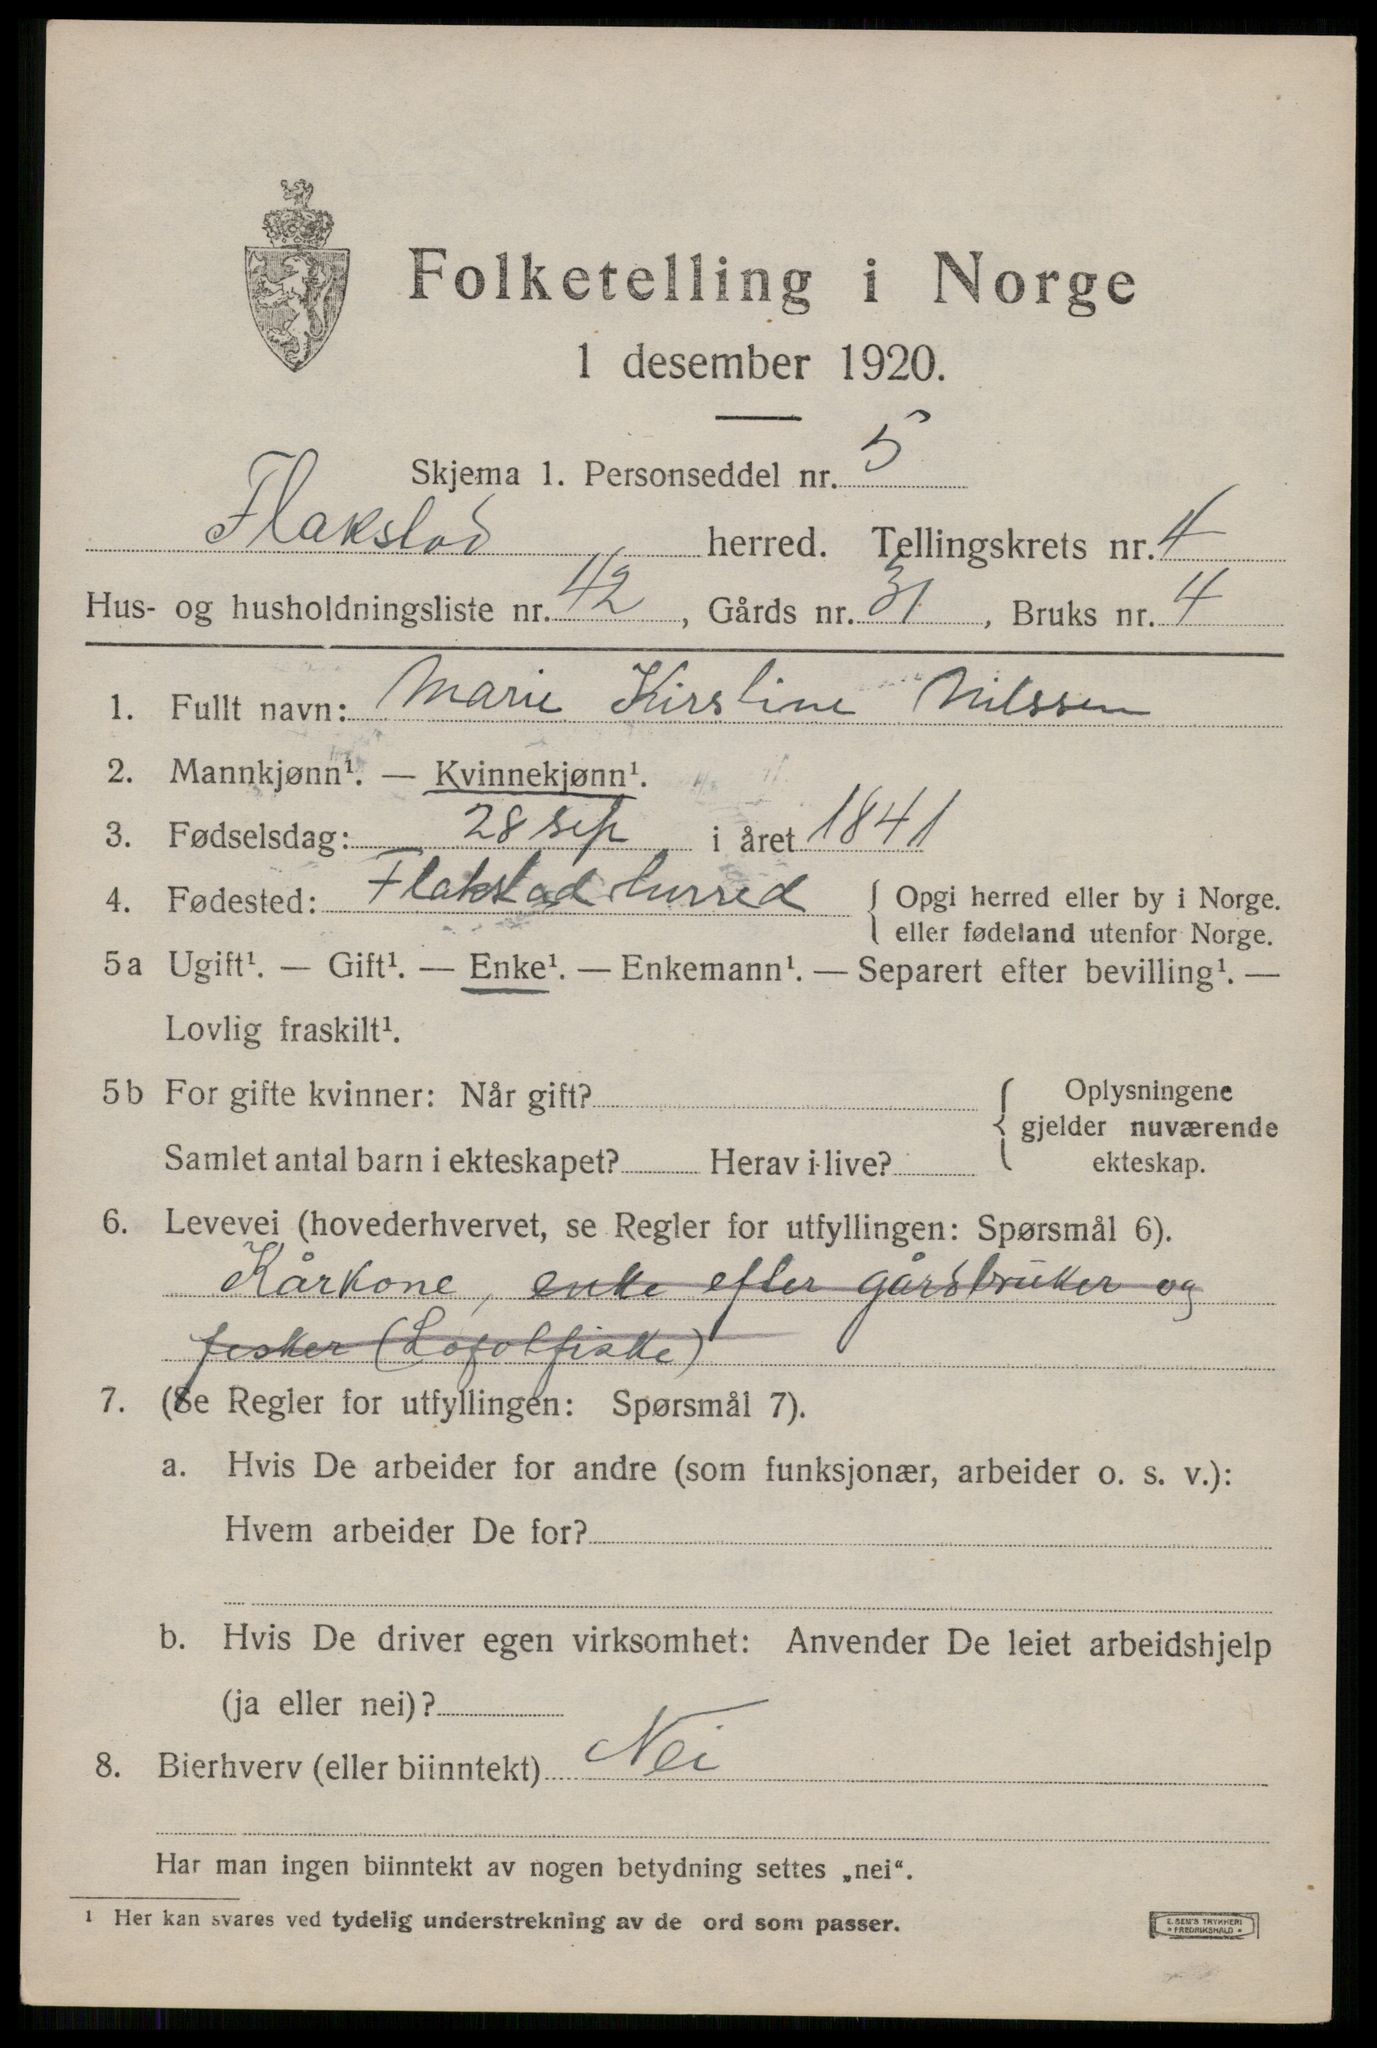 Folketelling i Norge
1 desember 1920.
Skjema 1. Personseddel nr. 5
Flakstad herred. Tellingskrets nr. 4
Hus- og husholdningsliste nr. 42, Gårds nr. 31, Bruks nr. 4
1. Fullt navn: Marie Kirstine Nilssen
2. Mannkjønn¹. — Kvinnekjønn¹.
3. Fødselsdag: 28 sep i året 1841
4. Fødested: Flakstad herred { Opgi herred eller by i Norge.
eller fødeland utenfor Norge.
5a Ugift¹. — Gift¹. — Enke¹. — Enkemann¹. — Separert efter bevilling¹. —
Lovlig fraskilt¹.
5b For gifte kvinner: Når gift? { Oplysningene
gjelder nuværende
ekteskap.
Samlet antal barn i ekteskapet? Herav i live?
6. Levevei (hovederhvervet, se Regler for utfyllingen: Spørsmål 6).
Kårkone, enke efter gårsbruker og
fisker (Lofotfiske)
7. (Se Regler for utfyllingen: Spørsmål 7).
a. Hvis De arbeider for andre (som funksjonær, arbeider o. s. v.):
Hvem arbeider De for?
b. Hvis De driver egen virksomhet: Anvender De leiet arbeidshjelp
(ja eller nei)?
8. Bierhverv (eller biinntekt) Nei
Har man ingen biinntekt av nogen betydning settes „nei“.
¹ Her kan svares ved tydelig understrekning av de ord som passer.
E. SEM'S TRYKKERI
* FREDRIKSHALD *